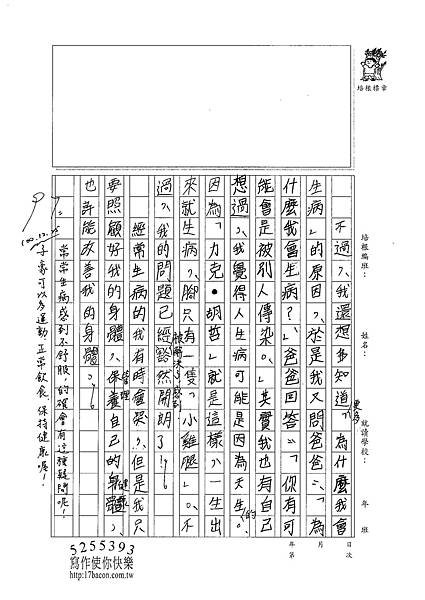 培根標章
培根編班：
姓名：
就讀學校：
年 班
次 日 月
第 年
不過，我還想多知道為什麼我會
更多
生病」的原因，於是我又問爸爸：「為
什麼我會生病？」爸爸回答：「你有可
能會是被別人傳染。」其實我也有自己
想過，我覺得人生病可能是因為天生
的
因為「力克•胡哲」就是這樣，一生出
來就生病，腳只有一隻「小雞腿」。不
過，我的問題已經豁然開朗了！
被解決了，感到
經常生病的我有時會哭，但是我只
要照顧好我的身體，保養自己的身體，
管理
健康
也許能改善我的身體。
常常生病感到不舒服，的確會有這種疑問呢！
子豪可以多運動、正常飲食，保持健康喔！
5255393
寫作使你快樂
http://17bacon.com.tw